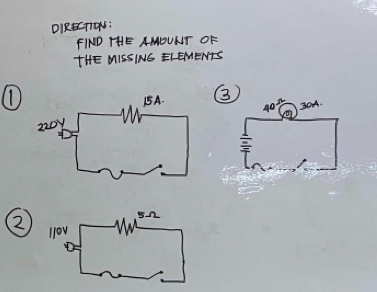 DIRECTION:
FIND THE AMOUNT OF
THE MISSING ELEMENTS
①
15A.
220V
③
40Ω
30A.
②
5Ω
110V